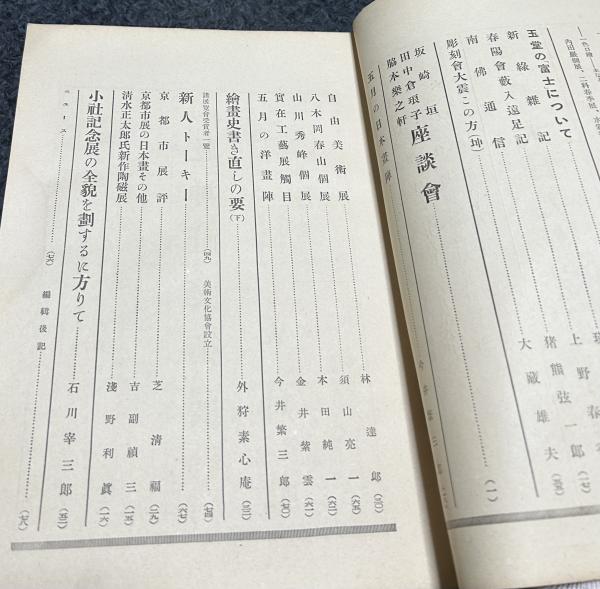 玉堂の「富士について
新緑雜記
春陽會藪入遠足記
南佛通信 大藏雄夫
彫刻會大震・この方(坤) (一)
坂崎坦
田中倉琅子
脇本樂之軒
座談會
五月の日本畫陣
自由美術展 林達郎 (三〇)
八木岡春山個展 須山亮一 (六五)
山川秀峰個展 木田純一 (六三)
實在工藝展觸目 金井紫雲 (六一)
五月の洋畫陣 今井繁三郎 (七〇)
繪畫史書き直しの要(下) 外狩素心庵 (三)
諸展覽會受賞者一覽 (四九) 美術文化協會設立 (七四)
新人トーキー (六七)
京都市展評 芝清福 (二九)
京都市展の日本畫その他 吉副禎三 (五五)
清水正太郎氏新作陶磁展 淺野利眞 (一六)
小社記念展の全貌を劃するに方りて 石川宰三郎 (五二)
ニュース (七六) 編輯後記 (七八)